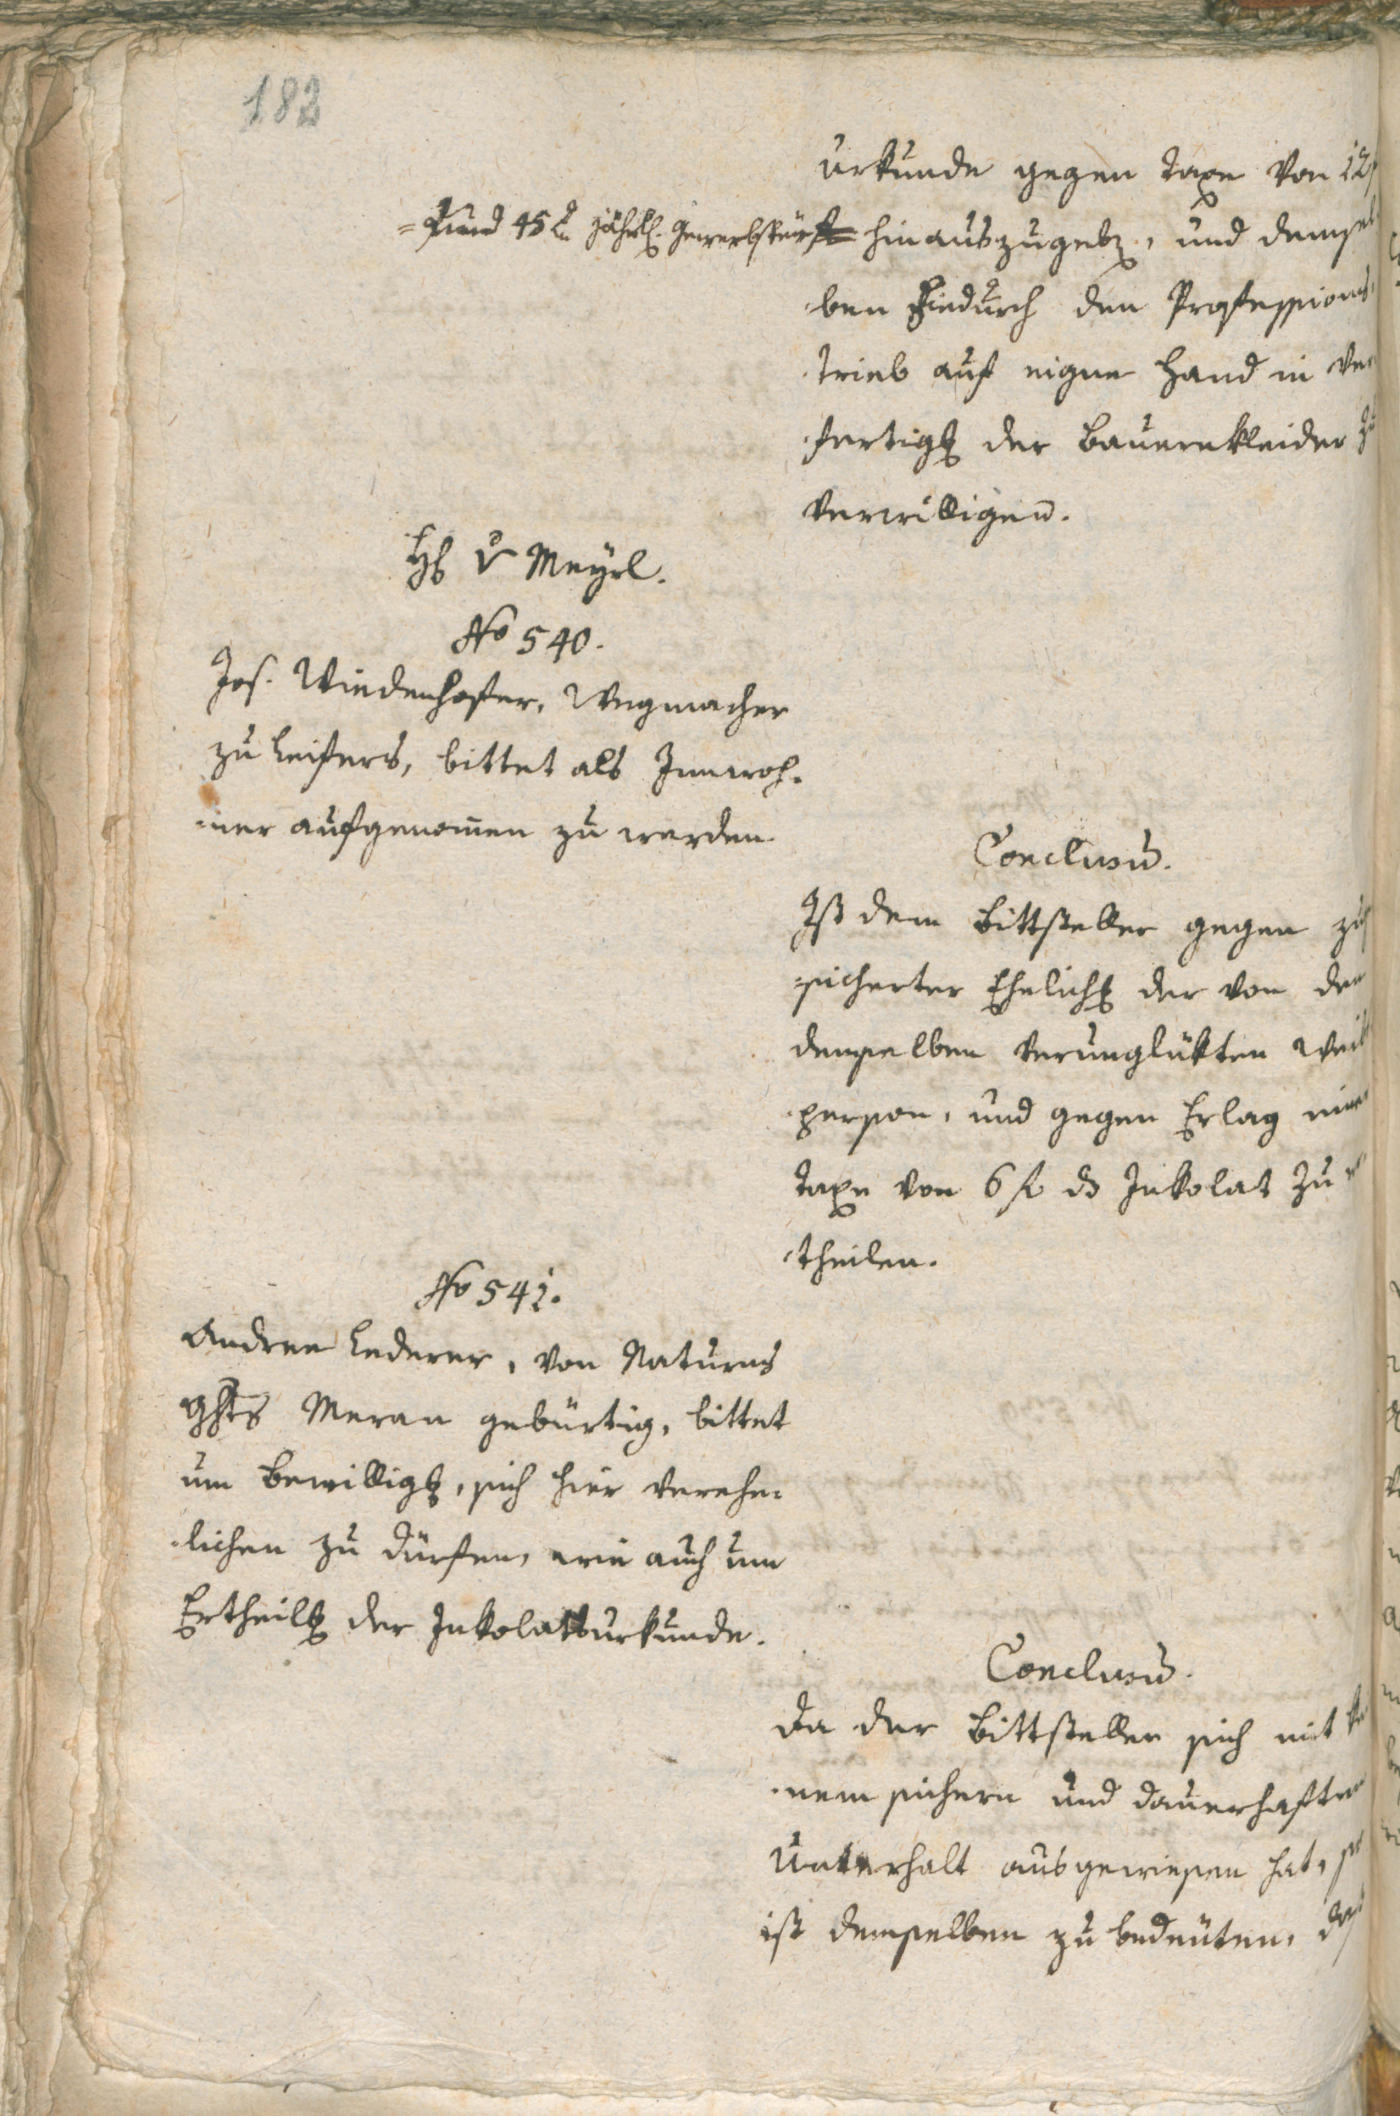 183
urkunde gegen Taxe von 12f
= und 45 x jährl. Gewerbsteur hinauszugebg, und demsel
ben hiedurch den Professions¬
trieb auf eigne Hand in Ver
fertigg der Bauernkleider zu
verwilligen.
H v Meyrl.
No 540.
Jos. Wiedenhofer, Wegmacher
zu Leifers, bittet als Innwoh¬
ner aufgenomen zu werden.
Conclusu.
Ist dem Bittsteller gegen zuge
sicherter Ehelichg der von
demselben verunglükten Weibs
person, und gegen Erlag einer
Taxe von 6 f ds Inkolat zu er
theilen.
No 541.
Andree Lederer, von Naturns
Ghts Meran gebürtig, bittet
um Bewilligg, sich hier vereh¬
lichen zu dürfen, wie auch um
Ertheilg der Inkolatsurkunde.
Conclusu.
Da der Bittsteller sich mit kei
nem sichern und dauerhaften
Unterhalt ausgewiesen hat, so
ist demselben zu bedeuten, daß